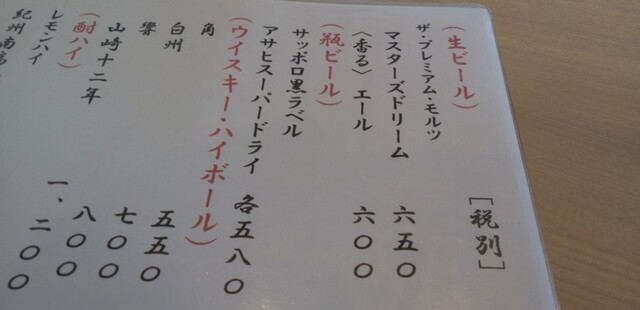 (生ビール) [税別]
ザ・プレミアム・モルツ
マスターズドリーム 六五〇
〈香る〉エール 六〇〇
(瓶ビール)
サッポロ黒ラベル
アサヒスーパードライ 各五八〇
(ウイスキー・ハイボール)
角 五五〇
白州 七〇〇
響 八〇〇
山崎十二年 一、二〇〇
(酎ハイ)
レモンハイ
紀州南高